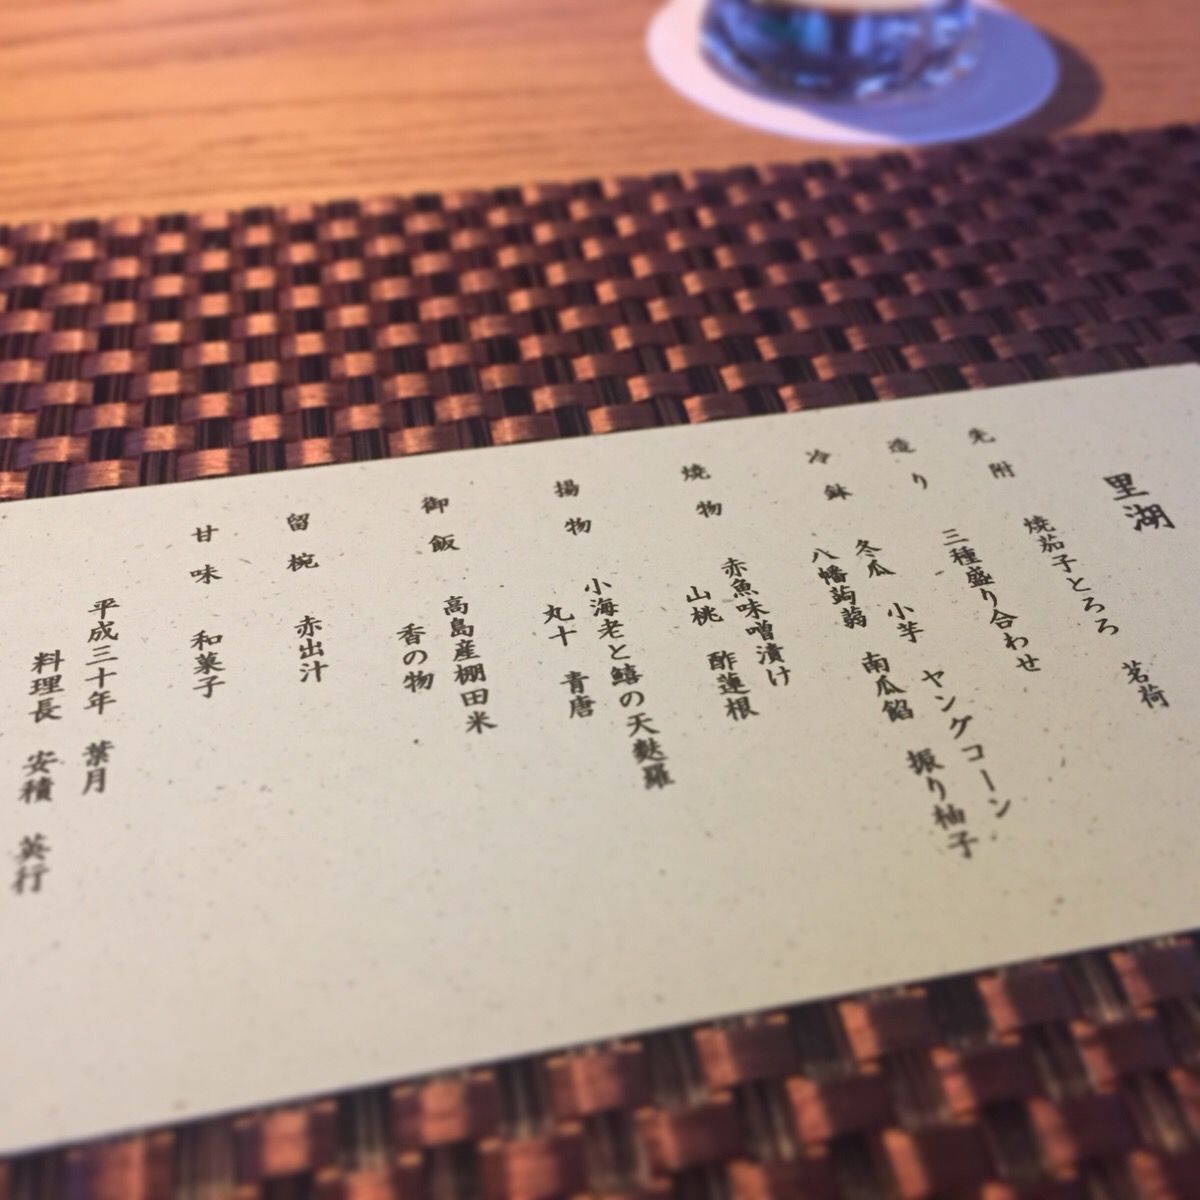 里湖
先附
焼茄子とろろ 茗荷
造り
三種盛り合わせ
冷鉢
冬瓜 小芋 ヤングコーン
八幡蒟蒻 南瓜餡 振り柚子
焼物
赤魚味噌漬け
山桃 酢蓮根
揚物
小海老と鱚の天麩羅
丸十 青唐
御飯
高島産棚田米
香の物
留椀
赤出汁
甘味
和菓子
平成三十年 葉月
料理長 安積 英行